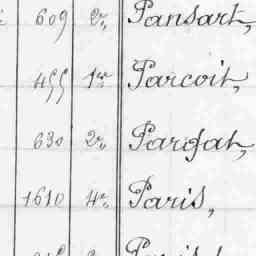 609 2º Pansart,
455 1er Parcoit,
630 2º Parofat,
1610 4º Paris,